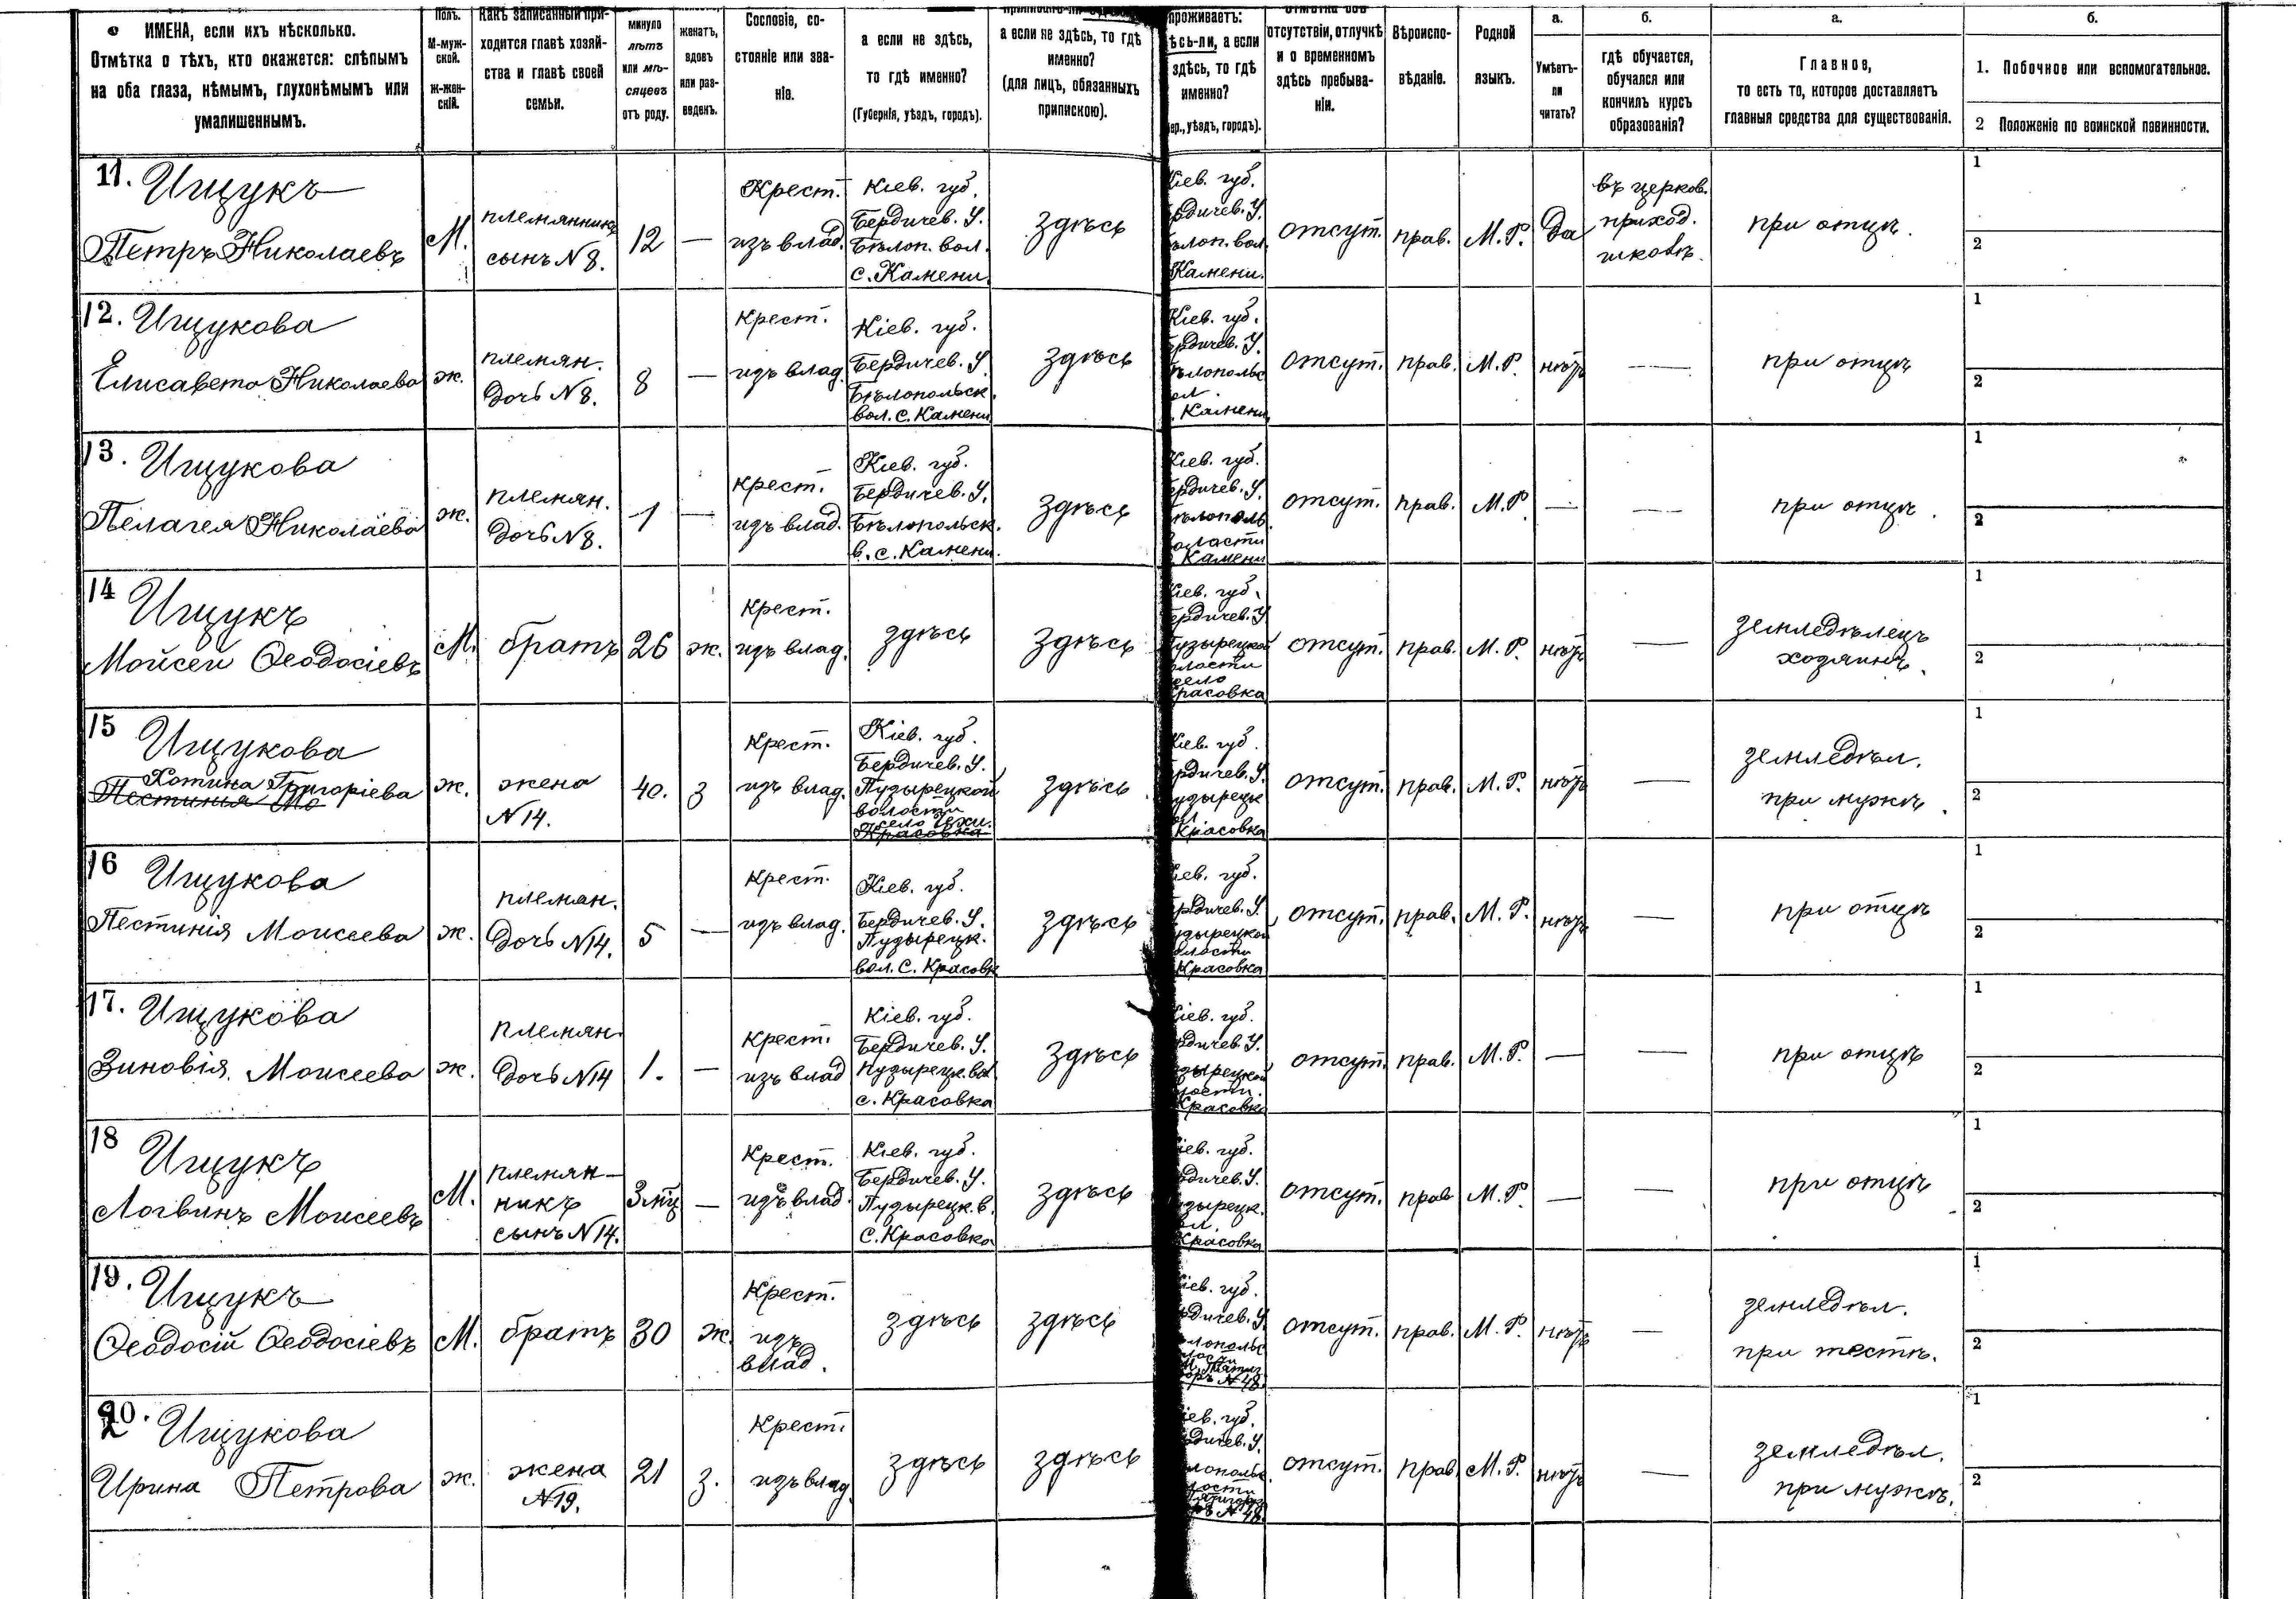 ИМЕНА, если ихъ нѣсколько.
Отмѣтка о тѣхъ, кто окажется: слѣпымъ
на оба глаза, нѣмымъ, глухонѣмымъ или
умалишеннымъ.
Полъ.
М-муж-
ской.
Ж-жен-
скій.
Какъ записанный при-
ходится главѣ хозяй-
ства и главѣ своей
семьи.
минуло
лѣтъ
или мѣ-
сяцевъ
отъ роду.
женатъ,
вдовъ
или раз-
веденъ.
Сословіе, со-
стояніе или зва-
ніе.
а если не здѣсь,
то гдѣ именно?
(Губернія, уѣздъ, городъ).
а если не здѣсь, то гдѣ
именно?
(для лицъ, обязанныхъ
припискою).
проживаетъ:
а если
здѣсь, то гдѣ
именно?
уѣздъ, городъ).
отсутствіи, отлучкѣ
и о временномъ
здѣсь пребыва-
ніи.
Вѣроиспо-
вѣданіе.
Родной
языкъ.
а.
Умѣетъ-
ли
читать?
б.
гдѣ обучается,
обучался или
кончилъ курсъ
образованія?
а.
Главное,
то есть то, которое доставляетъ
главныя средства для существованія.
б.
1. Побочное или вспомогательное.
2 Положеніе по воинской повинности.
11. Ищукъ
Петръ Николаевъ
М.
племянникъ
сынъ N 8.
12
—
Крест.
изъ влад.
Кіев. губ.
Бердичев. У.
Бѣлоп. вол.
с. Камени.
здѣсь
Кіев. губ.
рдичев. У.
ѣлоп. вол.
Камени.
отсут.
прав.
М. Р.
Да
въ церков.
приход.
школѣ.
при отцѣ.
1
2
12. Ищукова
Елисавета Николаева
ж.
племян.
дочь N 8.
8
—
крест.
изъ влад.
Кіев. губ.
Бердичев. У.
Бѣлопольск.
вол. с. Камени
здѣсь
Кіев. губ.
ердичев. У.
ѣлопольс
ол.
Камени
отсут.
прав.
М. Р.
нѣтъ
—
при отцѣ
1
2
13. Ищукова
Пелагея Николаева
ж.
племян.
дочь N 8.
1
—
крест.
изъ влад.
Кіев. губ.
Бердичев. У.
Бѣлопольск.
в. с. Камени.
здѣсь
Кіев. губ.
ердичев. У.
ѣлополь.
оласти
Камени
отсут.
прав.
М. Р.
—
—
при отцѣ.
1
2
14 Ищукъ
Мойсей Ѳеодосіевъ
М.
братъ
26
ж.
крест.
изъ влад.
здѣсь
здѣсь
Кіев. губ.
ердичев. У
Пузырецкой
оласти
село
Красовка
отсут.
прав.
М. Р.
нѣтъ
—
земледѣлецъ
хозяинъ.
1
2
15 Ищукова
Хотина Григоріева
Пестинія Мо
ж.
жена
N 14.
40.
з
Крест.
изъ влад.
Кіев. губ.
Бердичев. У.
Пузырецкой
волости
село
Красовка
здѣсь
Кіев. губ.
рдичев. У.
узырецк
Красовка
отсут.
прав.
М. Р.
нѣтъ
—
земледѣл.
при мужѣ.
1
2
16 Ищукова
Пестинія Моисеева
ж.
племян.
дочь N 14.
5
—
Крест.
изъ влад.
Кіев. губ.
Бердичев. У.
Пузырецк.
вол. С. Красовк
здѣсь
іев. губ.
рдичев. У.
узырецкой
олости
Красовка
отсут.
прав.
М. Р.
нѣтъ
—
при отцѣ
1
2
17. Ищукова
Зиновія Моисеева
ж.
племян.
дочь N 14
1.
—
Крест.
изъ влад
Кіев. губ.
Бердичев. У.
Пузырецк. вол.
с. Красовка
здѣсь
Кіев. губ.
рдичев. У.
узырецкой
лости.
Красовка
отсут.
прав.
М. Р.
—
—
при отцѣ
1
2
18 Ищукъ
Логвинъ Моисеевъ
М.
племян-
никъ
сынъ N 14.
3 мц
—
Крест.
изъ влад.
Кіев. губ.
Бердичев. У.
Пузырецк. в.
С. Красовка
здѣсь
іев. губ.
рдичев. У.
узырецк.
ол.
Красовка
отсут.
прав
М. Р.
—
—
при отцѣ
1
2
19. Ищукъ
Ѳеодосій Ѳеодосіевъ
М.
братъ
30
ж.
Крест.
изъ
влад.
здѣсь
здѣсь
іев. губ.
рдичев. У.
лопольс
лости
N 48.
отсут.
прав.
М. Р.
нѣтъ
—
земледѣл.
при тестѣ.
1
2
20. Ищукова
Ирина Петрова
ж.
жена
N 19.
21
з.
Крест.
изъ влад.
здѣсь
здѣсь
іев. губ.
рдичев. У.
лопольс.
лости
N 48.
отсут.
прав.
М. Р.
нѣтъ
—
земледѣл.
при мужѣ.
1
2